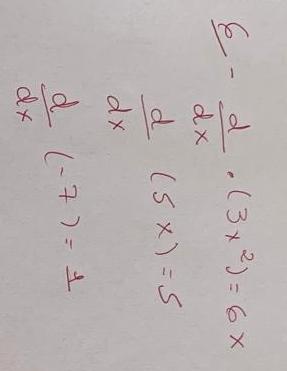 6 - d/dx . (3x²) = 6x
d/dx (5x) = 5
d/dx (-7) = 1